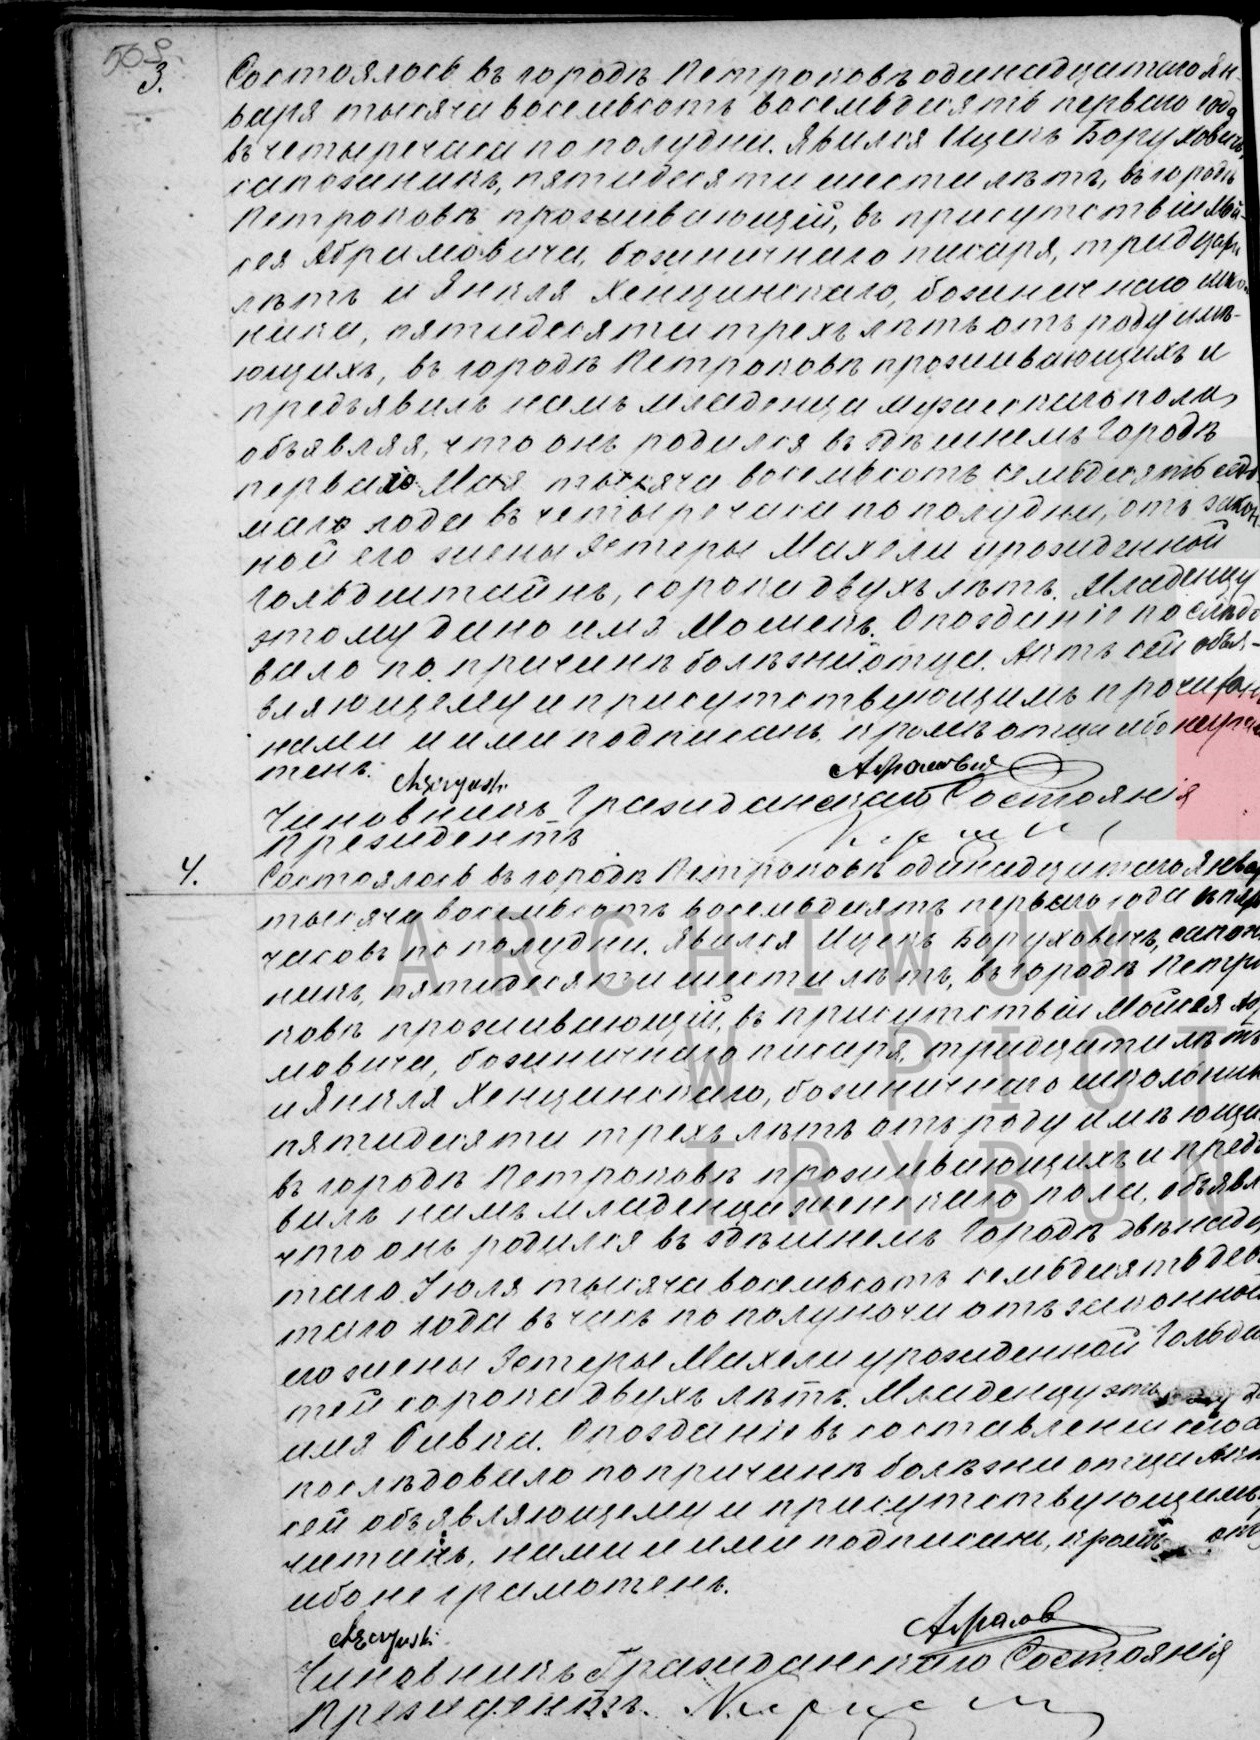 3.
Состоялось въ городѣ Петроковѣ одинадцатаго Ян-
варя тысяча восемьсотъ восемьдесятъ перваго года
въ четыре часа по полудни. Явился Ицекъ Боруховичъ,
сапожникъ, пятидесяти шести лѣтъ, въ городѣ
Петроковѣ проживающій, въ присутствіи Мой-
сея Абрамовича, божничнаго писаря, тридцати
лѣтъ и Янкля Хенцинскаго, божничнаго школь-
ника, пятидесяти трехъ лѣтъ отъ роду имѣ-
ющихъ, въ городѣ Петроковѣ проживающихъ и
предъявилъ намъ младенца мужескаго пола,
объявляя, что онъ родился въ здѣшнемъ Городѣ
перваго Мая тысяча восемьсотъ семьдесятъ седь
маго года въ четыре часа по полудни, отъ закон-
ной его жены Эстеры Махели урожденной
Гольдштайнъ, сорока двухъ лѣтъ. Младенцу
этому дано имя Мошекъ. Опозданіе послѣдо
вало по причинѣ болѣзни отца. Актъ сей объя-
вляющему и присутствующимъ прочитанъ
нами и ими подписанъ, кромѣ отца ибо негра
тенъ.
Чиновникъ Гражданскаго Состоянія
Президентъ
4.
Состоялось въ городѣ Петроковѣ одинадцатаго Январ
тысяча восемьсотъ восемьдесятъ перваго года въ
часовъ по полудни. Явился Ицекъ Боруховичъ, сапож
никъ, пятидесяти шести лѣтъ, въ городѣ Петро
ковѣ проживающій, въ присутствіи Мойсея Аб
мовича, божничнаго писаря, тридцати лѣтъ
и Янкля Хенцинскаго, божничнаго школьник
пятидесяти трехъ лѣтъ отъ роду имѣющи
въ городѣ Петроковѣ проживающихъ и предъ
вилъ намъ младенца женскаго пола, объявл
что онъ родился въ здѣшнемъ Городѣ двѣнадца
таго Іюля тысяча восемьсотъ семьдесятъ дев
таго года въ часъ по полуночи отъ законной
его жены Эстеры Махели урожденной Гольдш
тей сорока двухъ лѣтъ. Младенцу этому д
имя Сивка. Опозданіе въ составленіи сего а
послѣдовало по причинѣ болѣзни отца Акт
сей объявляющему и присутствующимъ
читанъ, нами и ими подписанъ, кромѣ отц
ибо не грамотенъ.
Чиновникъ Гражданскаго Состоянія
Президентъ.
ARCHIWUM
W PIOT
TRYBUN